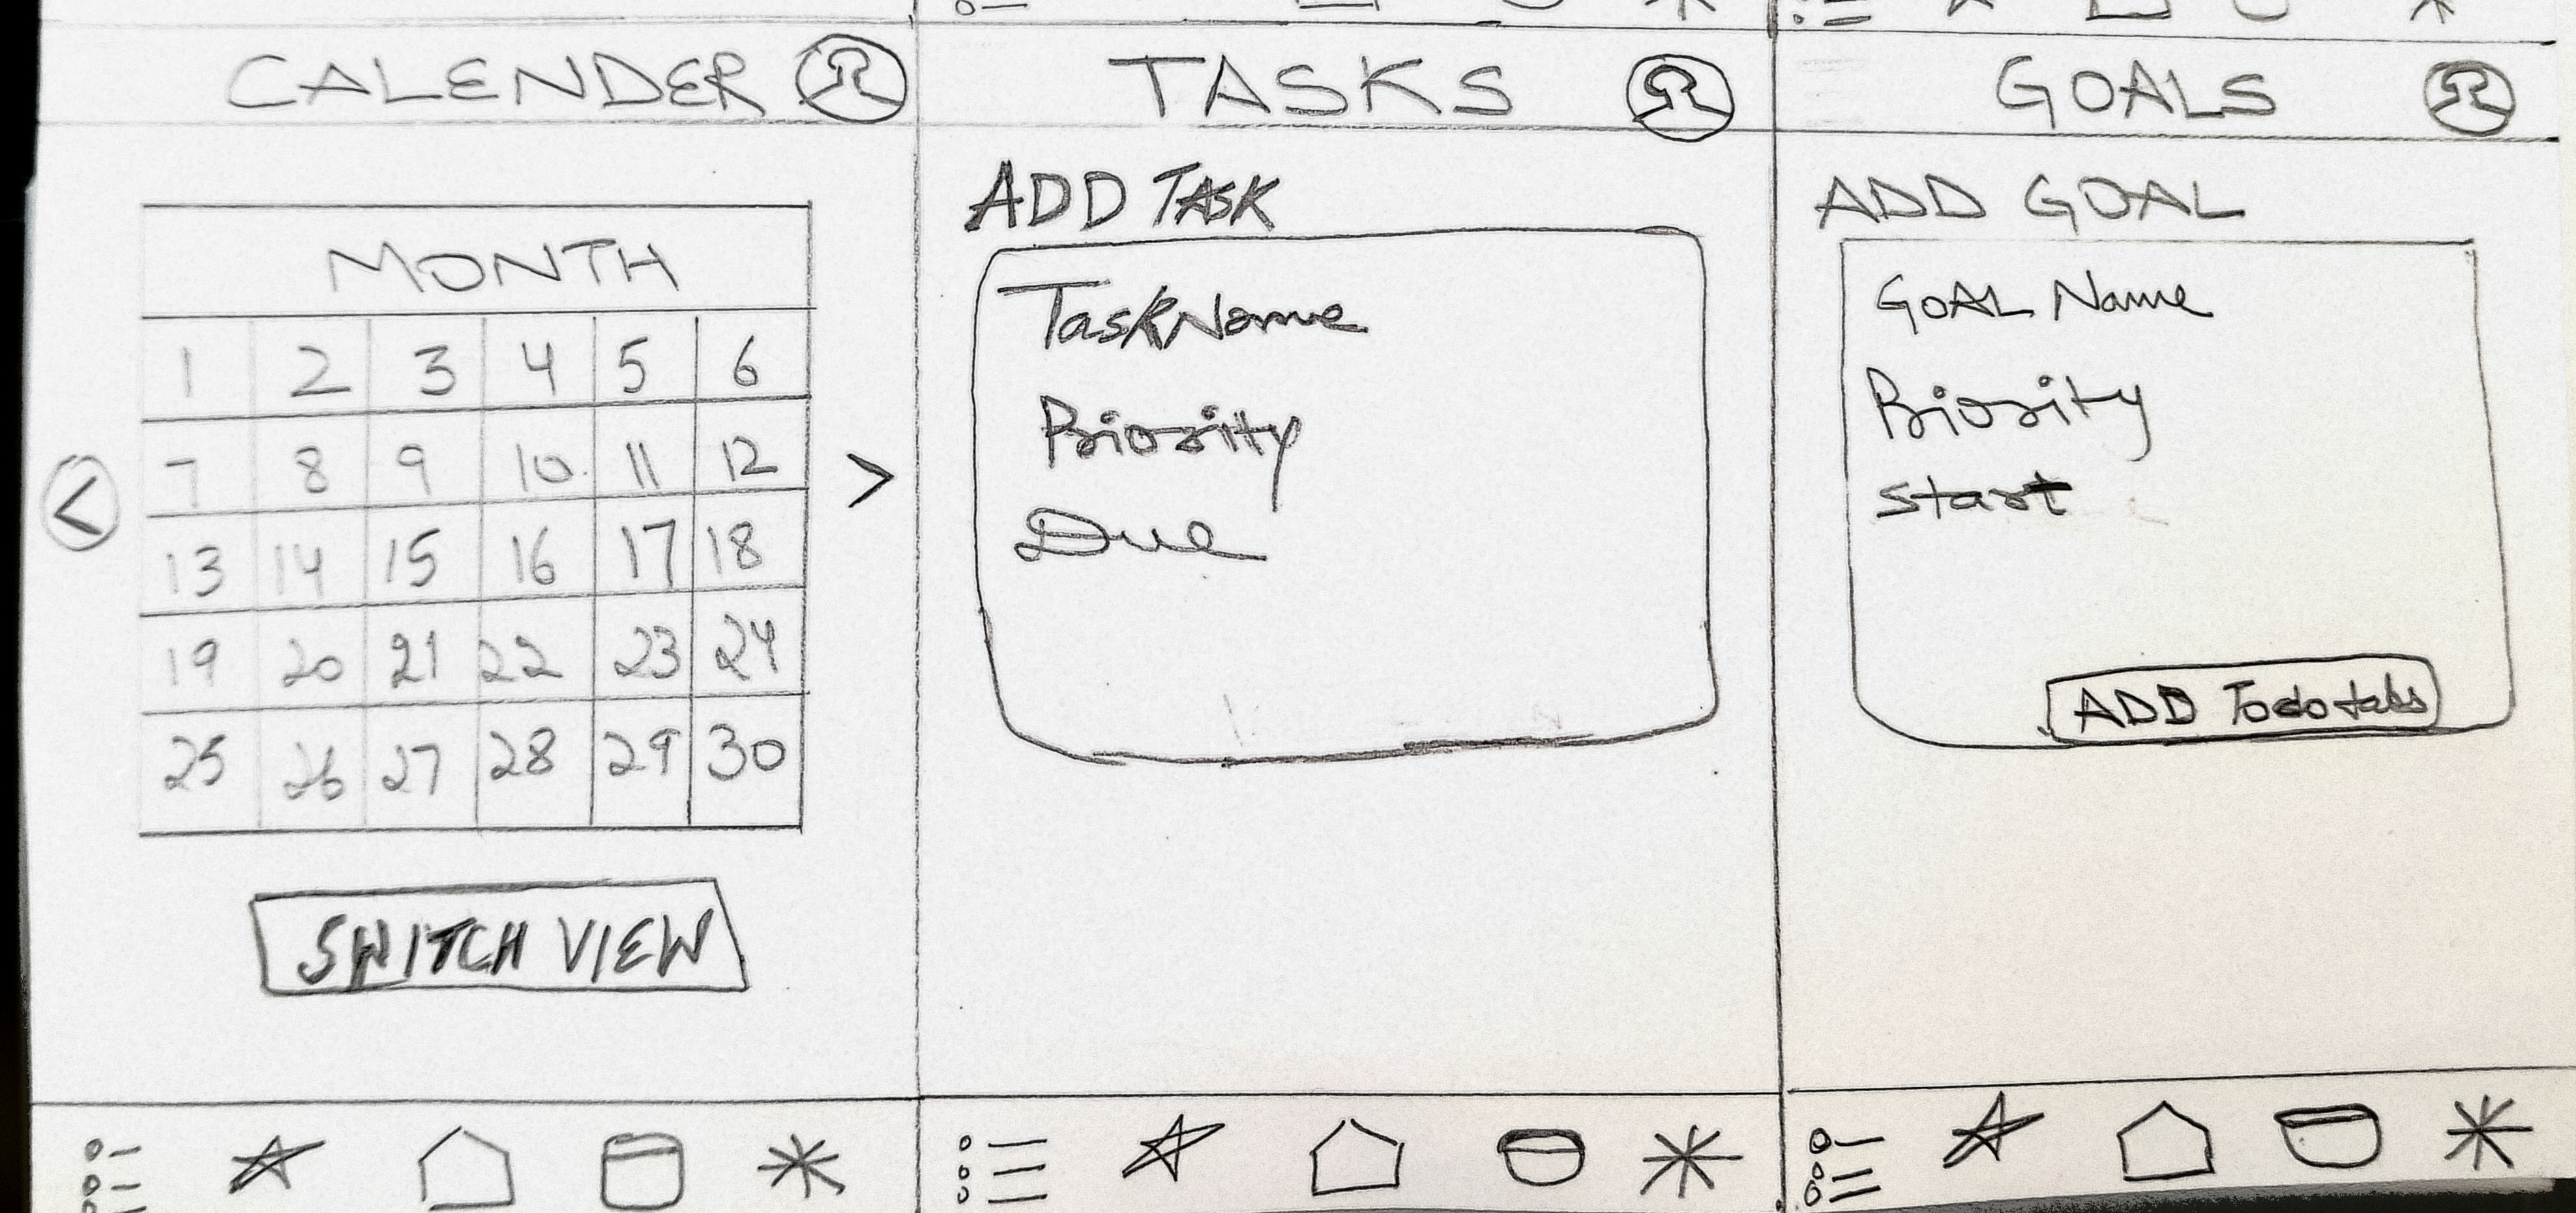 CALENDER
MONTH
1 2 3 4 5 6
7 8 9 10 11 12
13 14 15 16 17 18
19 20 21 22 23 24
25 26 27 28 29 30
<
>
SWITCH VIEW
TASKS
ADD TASK
Task Name
Priority
Due
GOALS
ADD GOAL
GOAL Name
Priority
Start
ADD Todo tabs